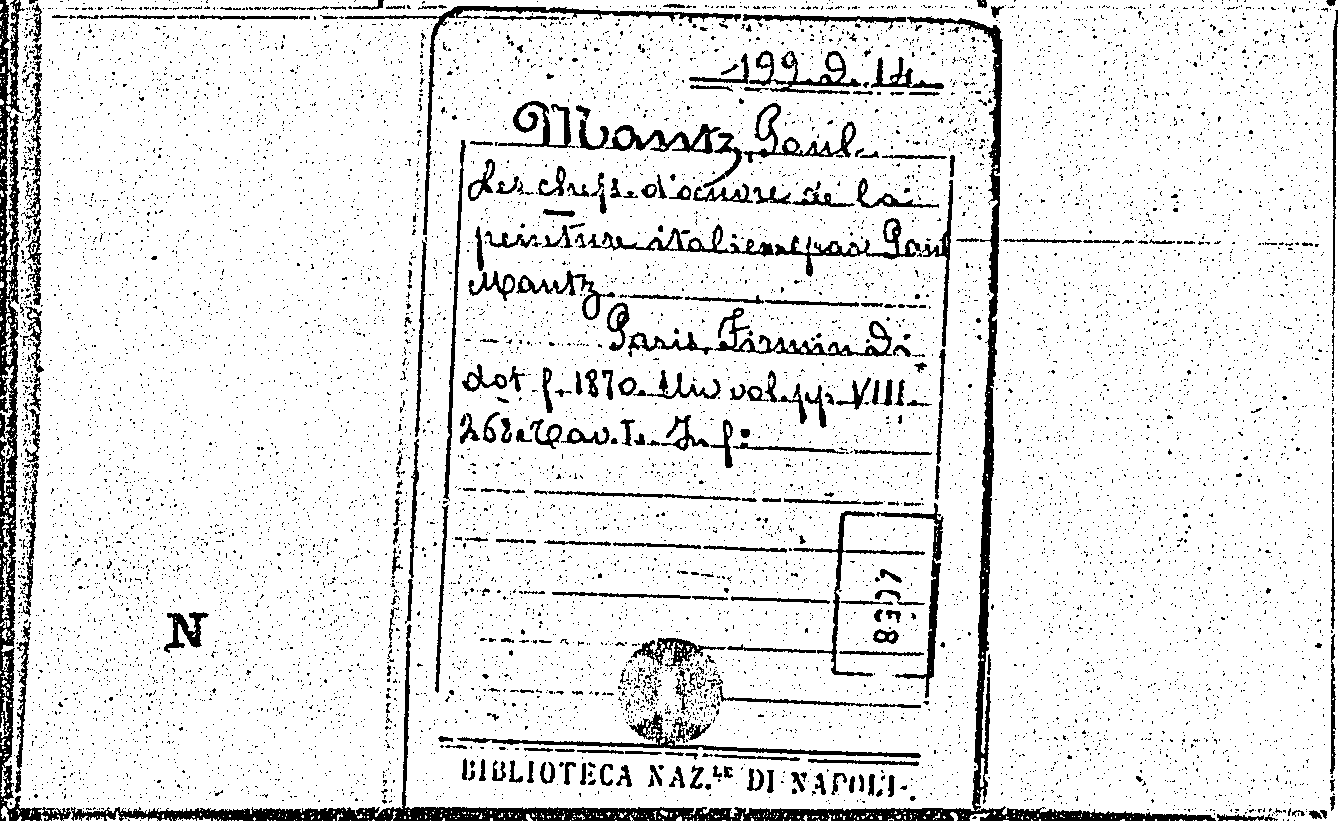 199. D. 14.
Mantz, Paul.
Les chefs-d'oeuvre de la
peinture italienne par Paul
Mantz
Paris, Firmin Di
dot f. 1870. Un vol. pp. VIII.
268 e Tav. In f:
N
BIBLIOTECA NAZ.LE DI NAPOLI.